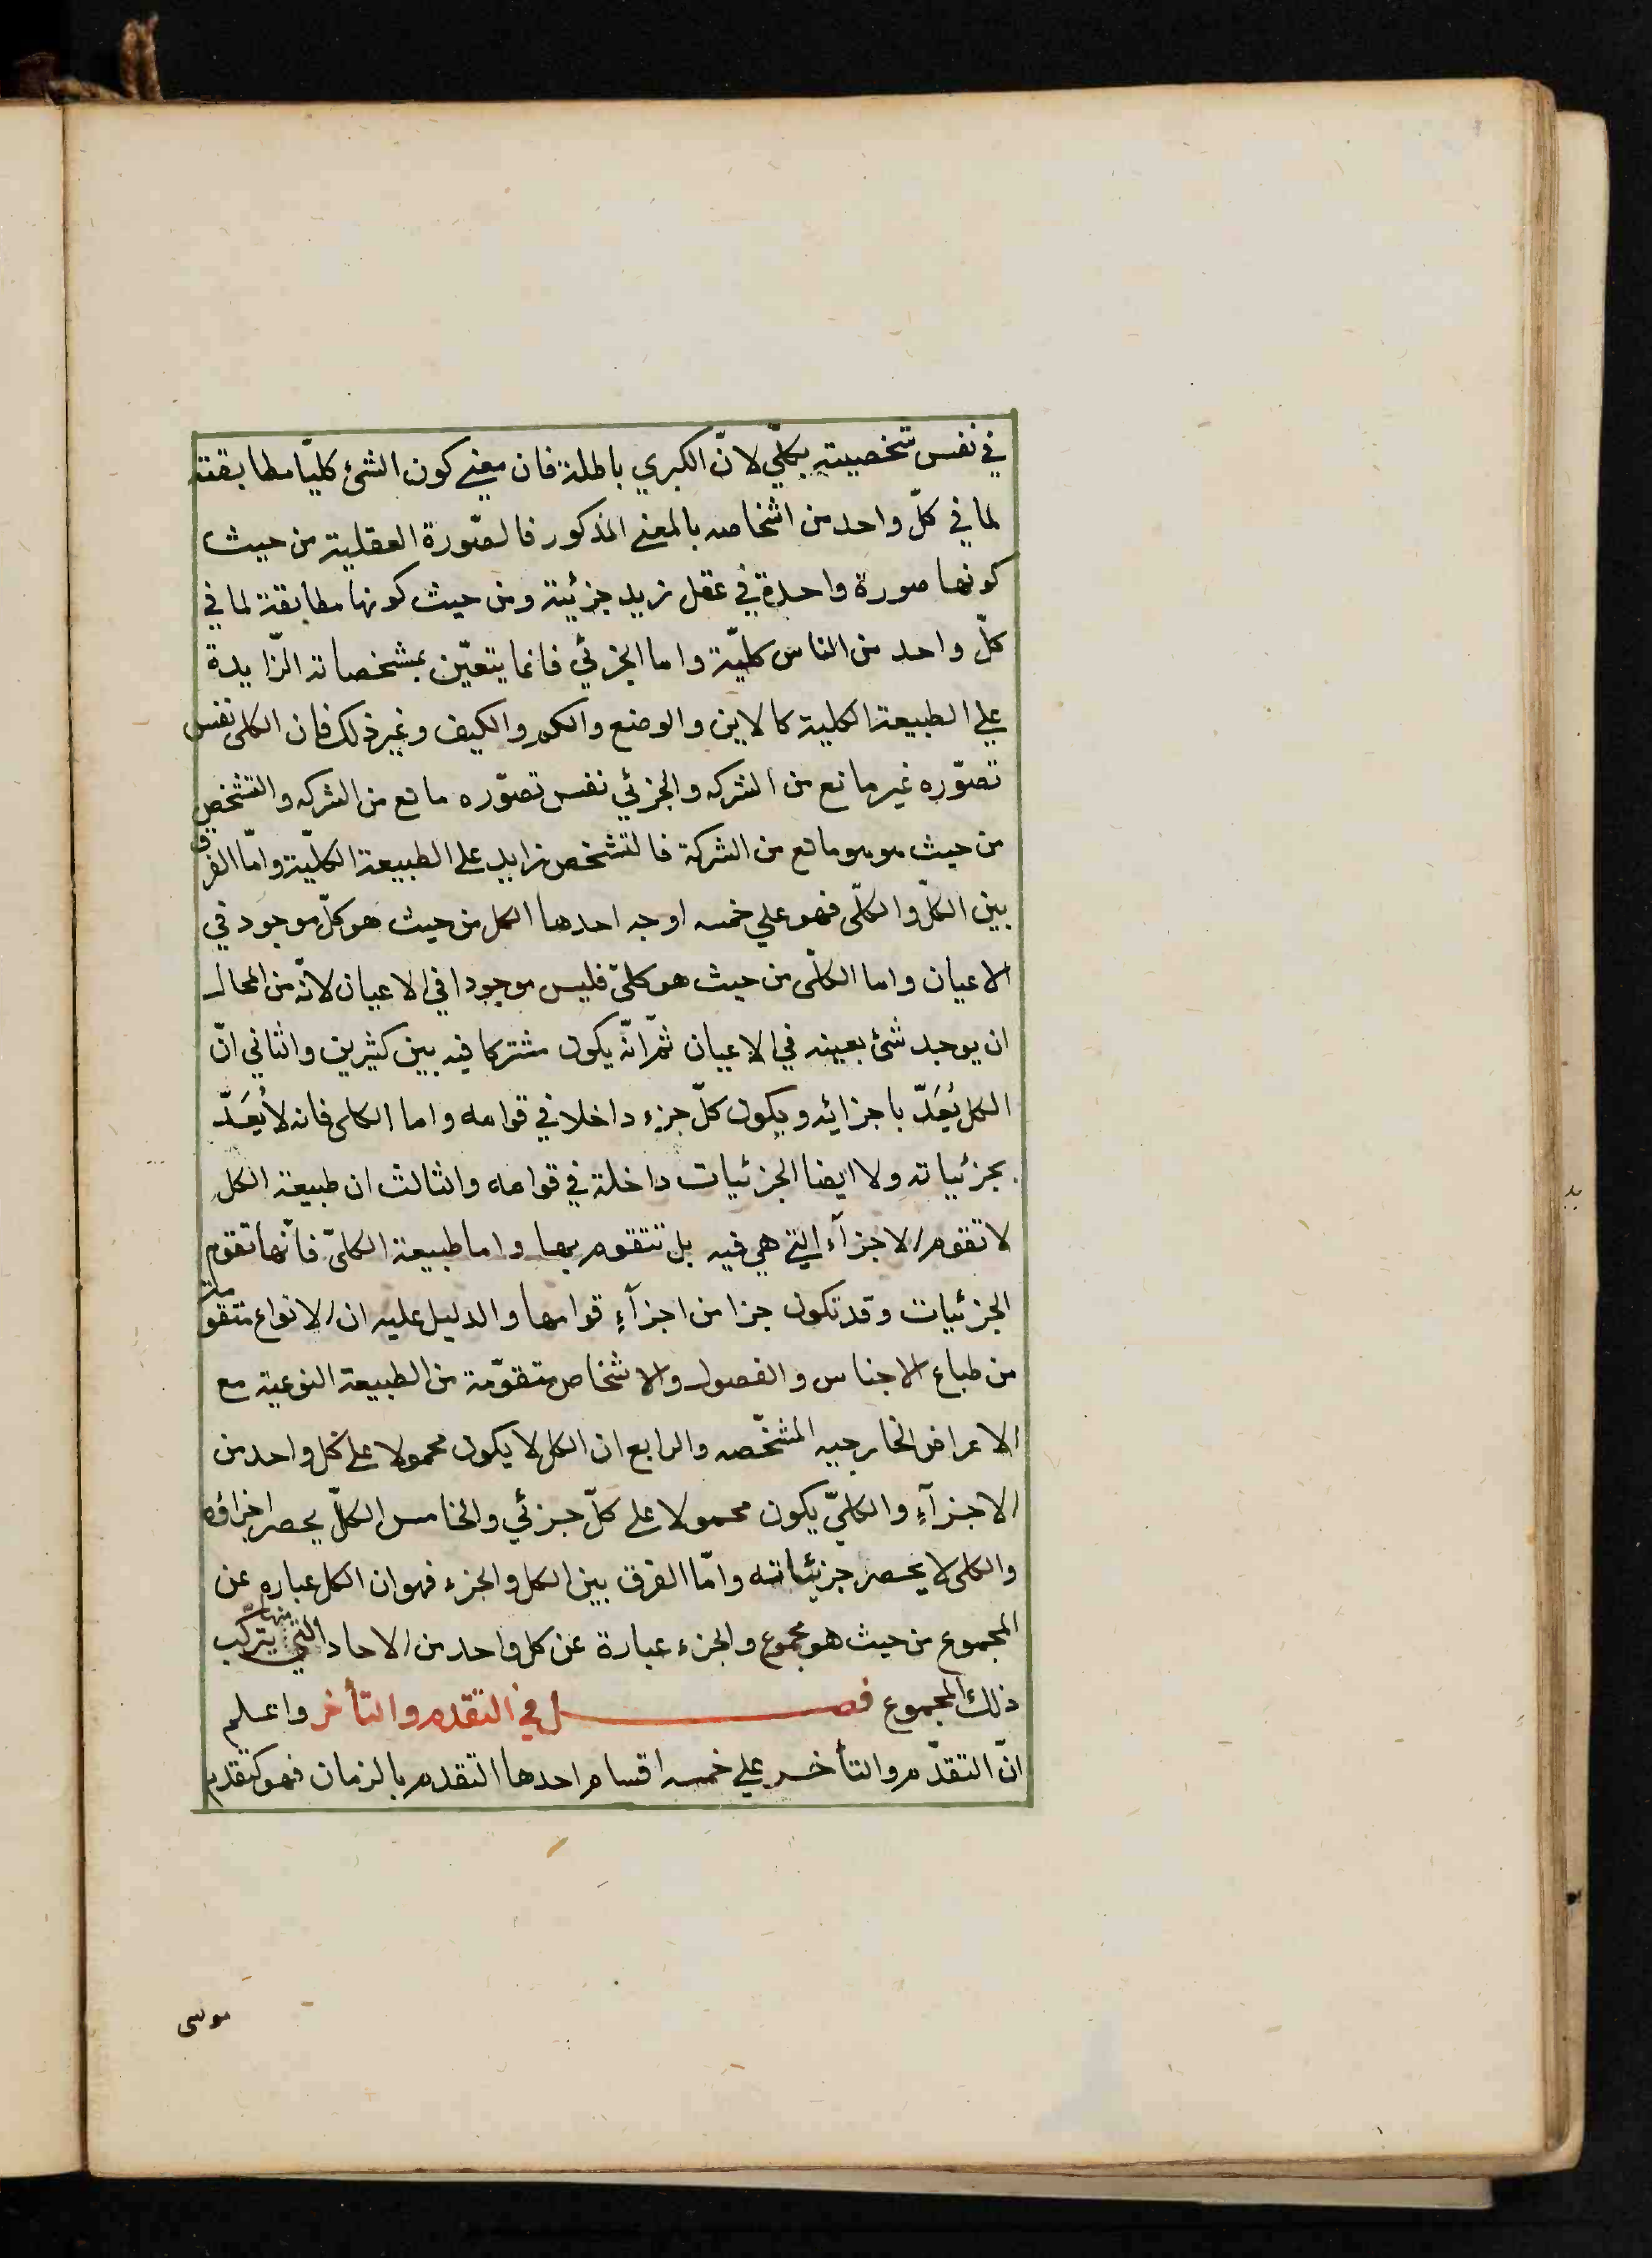 في نفس شخصيته بكلّي لانّ الكبري باطلة فان معني كون الشئ كليّا مطابقته
لما في كلّ واحد من اشخاصه بالمعني المذكور فالصّورة العقلية من حيث
كونها صورة واحدة في عقل زيد جزئية ومن حيث كونها مطابقة لما في
كلّ واحد من الناس كليّة واما الجزئي فانما يتعيّن بمشخصاته الزّايدة
علي الطبيعة الكلية كالاين والوضع والكم والكيف وغير ذلك فان الكلى نفس
تصوّره غير مانع من الشركه والجزئي نفس تصوّره مانع من الشركه والتشخص
من حيث هو هو مانع من الشركة فالتشخص زايد على الطبيعة الكليّة وامّا الفرق
بين الكلّ والكلّى فهو علي خمسه اوجه احدها الكل من حيث هو كلّ موجود في
الاعيان واما الكلّى من حيث هو كلىّ فليس موجودا في الاعيان لانّه من المحال
ان يوجد شئ بعينه في الاعيان ثمّ انّه يكون مشتركا فيه بين كثيرين والثاني انّ
الكل يُعَدّ باجزائه ويكون كلّ جزء داخلا في قوامه واما الكلى فانه لا يُعَدّ
بجزئياته ولا ايضا الجزئيات داخلة في قوامه والثالث ان طبيعة الكل
لا تقوم الاجزآء التي هي فيه بل تتقوم بها واما طبيعة الكلىّ فانّها تقوم
الجزئيات وقد تكون جزا من اجزآءِ قوامها والدليل عليه ان الانواع متقومة
من طباع الاجناس والفصول والاشخاص متقوّمة من الطبيعة النوعية مع
الاعراض الخارجيه المشخّصه والرابع ان الكل لا يكون محمولا على كل واحد من
الاجزآءِ والكلىّ يكون محمولا على كلّ جزئي والخامس الكلّ يحصر اجزاؤه
والكلى لا يحصر جزئياته وامّا الفرق بين الكل والجزء فهو ان الكل عباره عن
المجموع من حيث هو مجموع والجزء عبارة عن كل واحد من الاحاد التي يتركّب منها
ذلك المجموع فصل في التقدم والتأخر واعلم
انّ التقدّم والتأخر علي خمسه اقسام احدها التقدم بالزمان فهو كتقدم
موسى